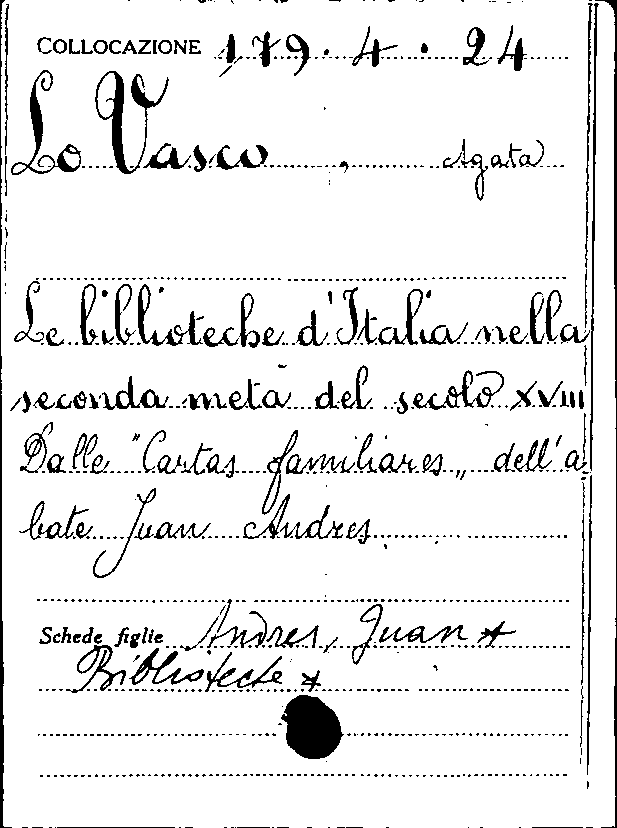 COLLOCAZIONE 179.4.24
Lo Vasco, Agata
Le biblioteche d'Italia nella
seconda metà del secolo XVIII
Dalle "Cartas familiares„ dell'a
bate Juan Andres
Schede figlie Andres, Juan *
Biblioteche *